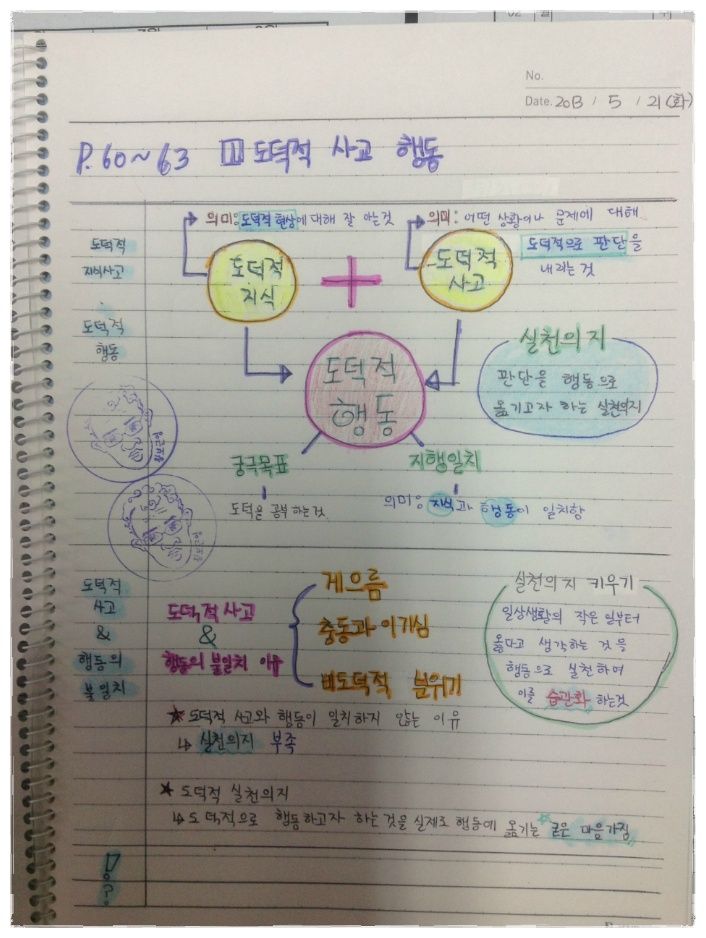 No.
Date. 2013 / 5 / 21 (화)
P. 60~63 1 도덕적 사고 행동
도덕적
지식사고
도덕적
행동
의미:도덕적 현상에 대해 잘 아는것
도덕적
지식
+
의미: 어떤 상황이나 문제에 대해
도덕적으로 판단을
내리는 것
도덕적
사고
도덕적
행동
실천의지
판단을 행동으로
옮기고자 하는 실천의지
궁극목표
도덕을 공부하는것
지행일치
의미: 지식과 행동이 일치함
도덕적
사고
&
행동의
불일치
도덕적 사고
&
행동의 불일치 이유
게으름
충동과 이기심
비도덕적 분위기
실천의지 키우기
일상생활의 작은 일부터
옳다고 생각하는 것을
행동으로 실천하여
이를 습관화 하는것
★ 도덕적 사고와 행동이 일치하지 않는 이유
↳ 실천의지 부족
★ 도덕적 실천의지
↳ 도덕적으로 행동하고자 하는것을 실제로 행동에 옮기는 굳은 마음가짐
!
?